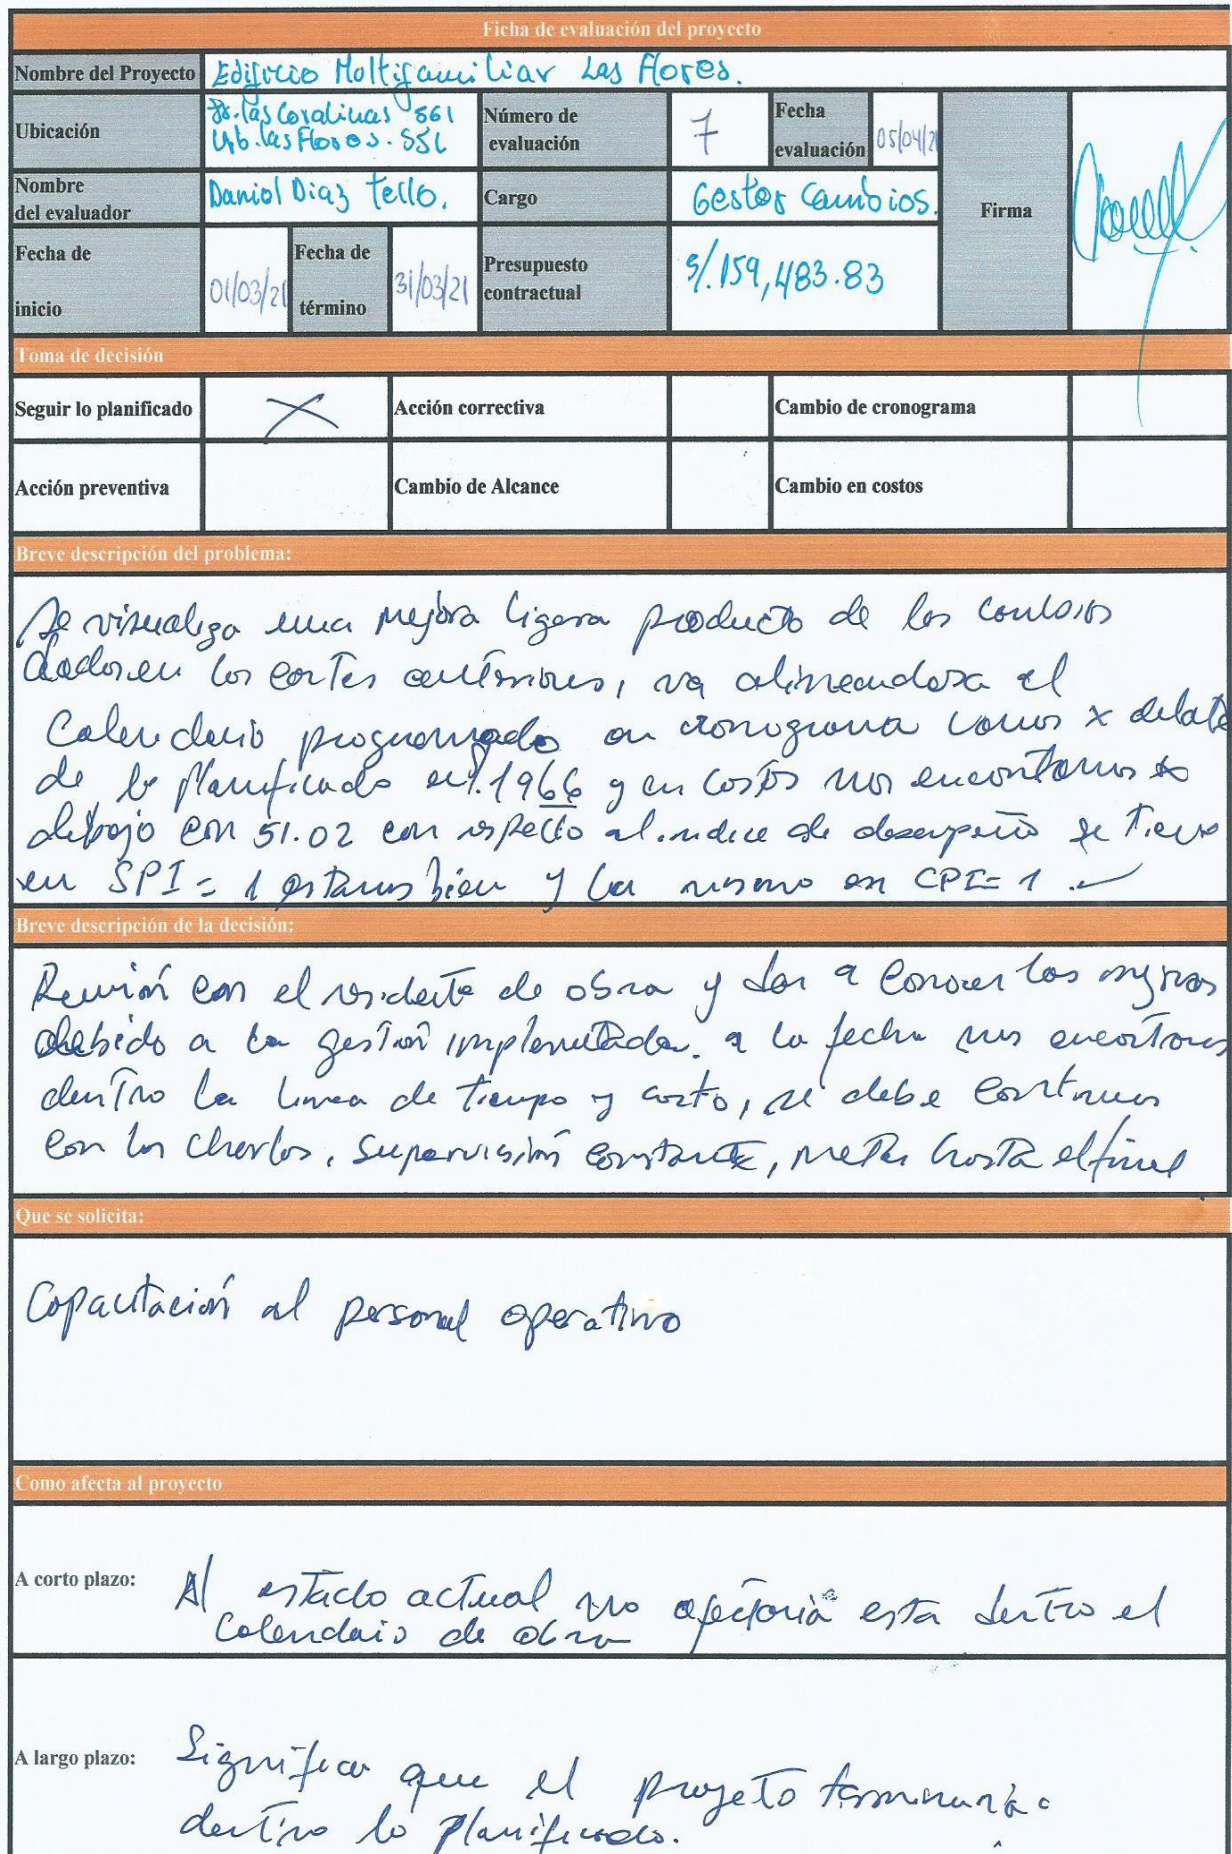 Ficha de evaluación del proyecto
Nombre del Proyecto Edificio Moltifamiliar Las Flores.
Ubicación Jr. las Coralinas 561
Urb. las Flores. SJL
Número de evaluación 7
Fecha evaluación 05/04/21
Nombre del evaluador Daniol Diaz Tello.
Cargo Gestor Cambios.
Firma
Fecha de inicio 01/03/21
Fecha de término 31/03/21
Presupuesto contractual S/. 159,483.83
Toma de decisión
Seguir lo planificado X Acción correctiva Cambio de cronograma
Acción preventiva Cambio de Alcance Cambio en costos
Breve descripción del problema:
Se visualiza una mejora ligera producto de los
en los cortes anteriores, va el
Calendario programado en cronograma vamos x delate
de lo planificado en 1.1966 y en costos nos encontramos x
debajo con 51.02 con respecto al indice de desempeño se tiene
en SPI = 1 estamos bien y lo mismo en CPI = 1
Breve descripción de la decisión:
Reunión con el residente de obra y dar a conocer las mejoras
debido a la gestión implementada. a la fecha nos encontramos
dentro la linea de tiempo y costo, se debe continuar
con las charlas, supervisión constante, metas hasta el final
Que se solicita:
Capacitación al personal operativo
Como afecta al proyecto
A corto plazo: Al estado actual no afectaria esta dentro el
Calendario de obra
A largo plazo: Significa que el proyeto terminaria
dentro lo planificado.